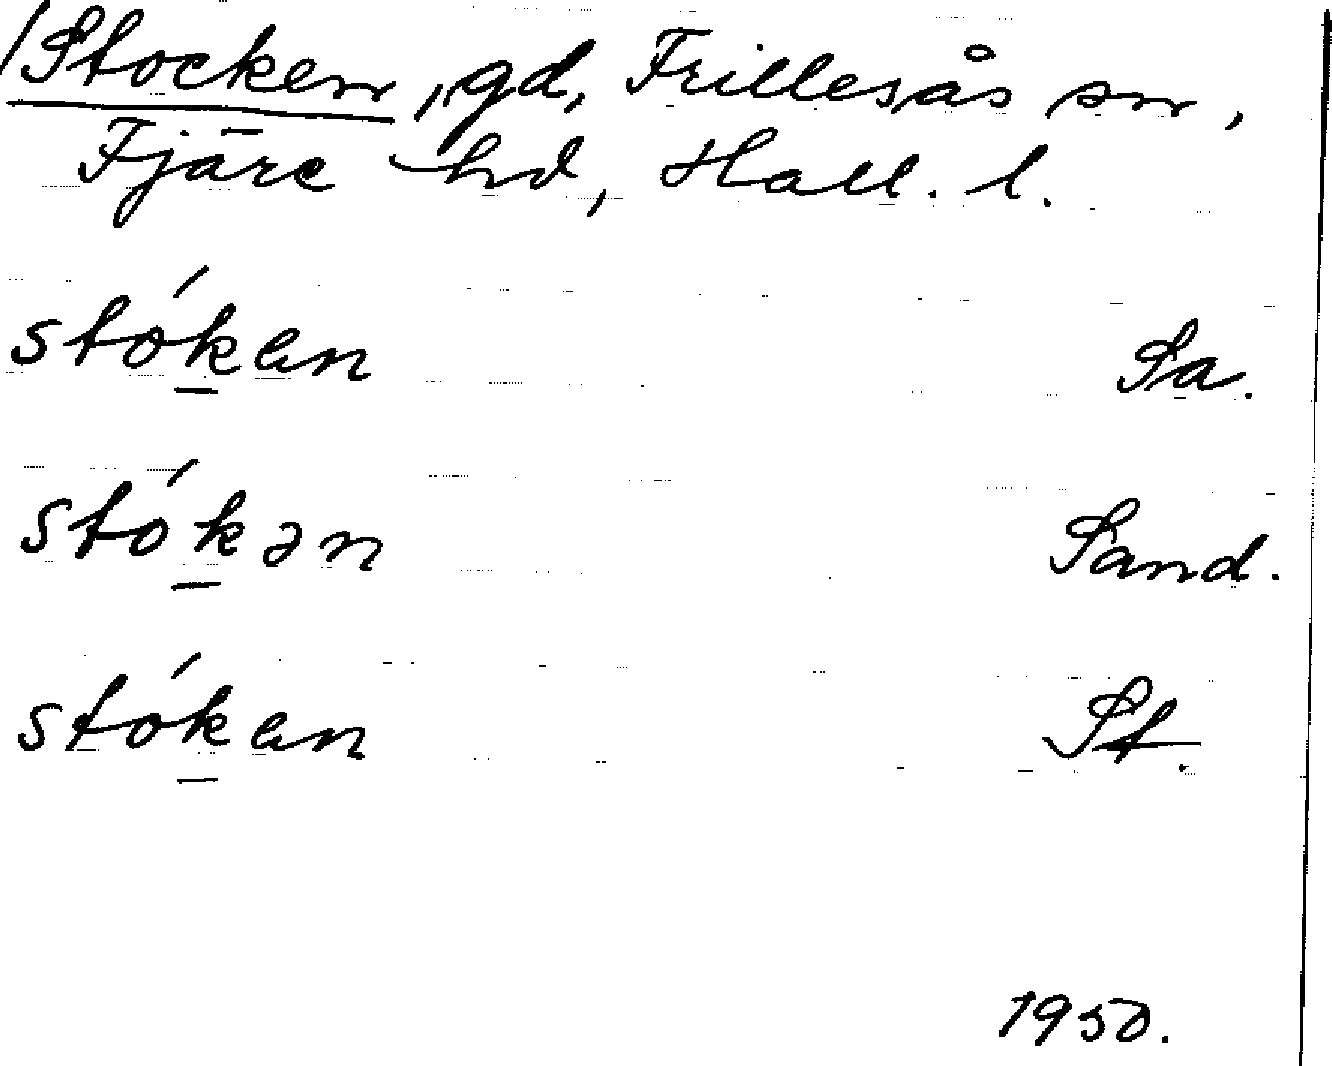 /Stocken, gd, Frillesås sn,
Fjäre hd, Hall. l.
stók̲en Sa.
stók̲ən Sand.
stók̲en St.
1950.